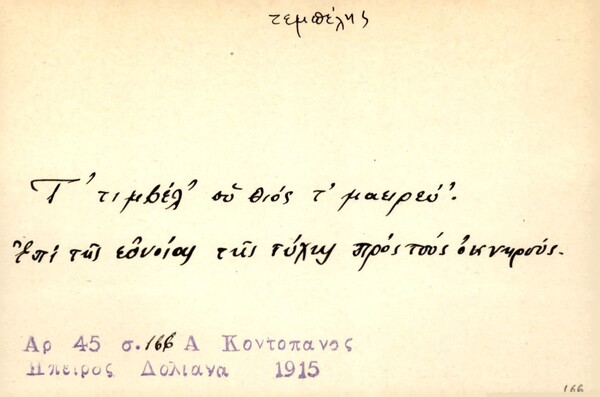 τεμπέλης
Τ' τιμβέλ' οὑ θιός τ' μαειρεύ'.
Ἐπί τῆς εὐνοίας τῆς τύχης πρός τούς ὀκνηρούς.
Αρ 45 σ. 166 Α Κοντοπανος
Ηπειρος Δολιανα 1915
166